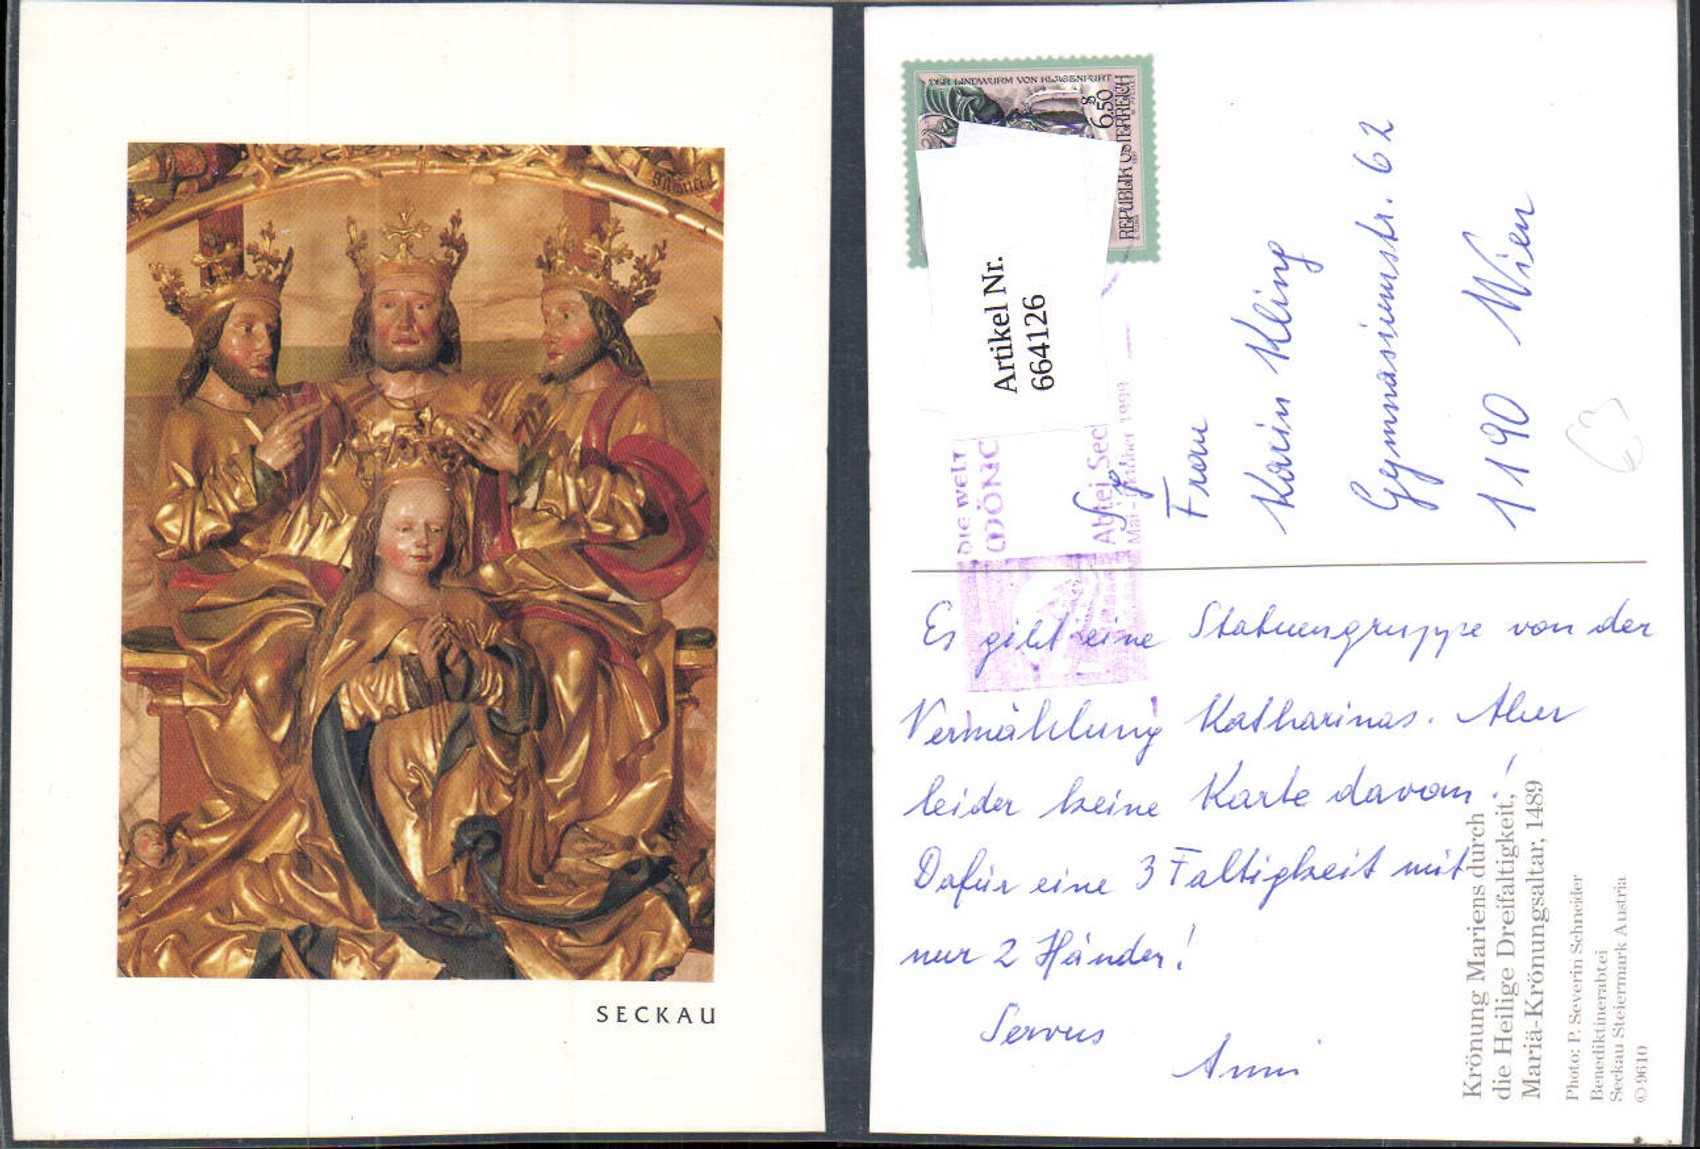 SECKAU
DER LINDWURM VON KLAGENFURT
S 6.50
REPUBLIK ÖSTERREICH
Artikel Nr.
664126
DIE WELT
MÖNC
Abtei Sec
Mai - Oktober 1999
Frau
Karin Kling
Gymnasiumstr. 62
1190 Wien
Es gibt eine Statuengruppe von der
Vermählung Katharinas. Aber
leider keine Karte davon!
Dafür eine 3Faltigkeit mit
nur 2 Händen!
Servus
Anni
Krönung Mariens durch
die Heilige Dreifaltigkeit,
Mariä-Krönungsaltar, 1489
Photo: P. Severin Schneider
Benediktinerabtei
Seckau Steiermark Austria
© 9610